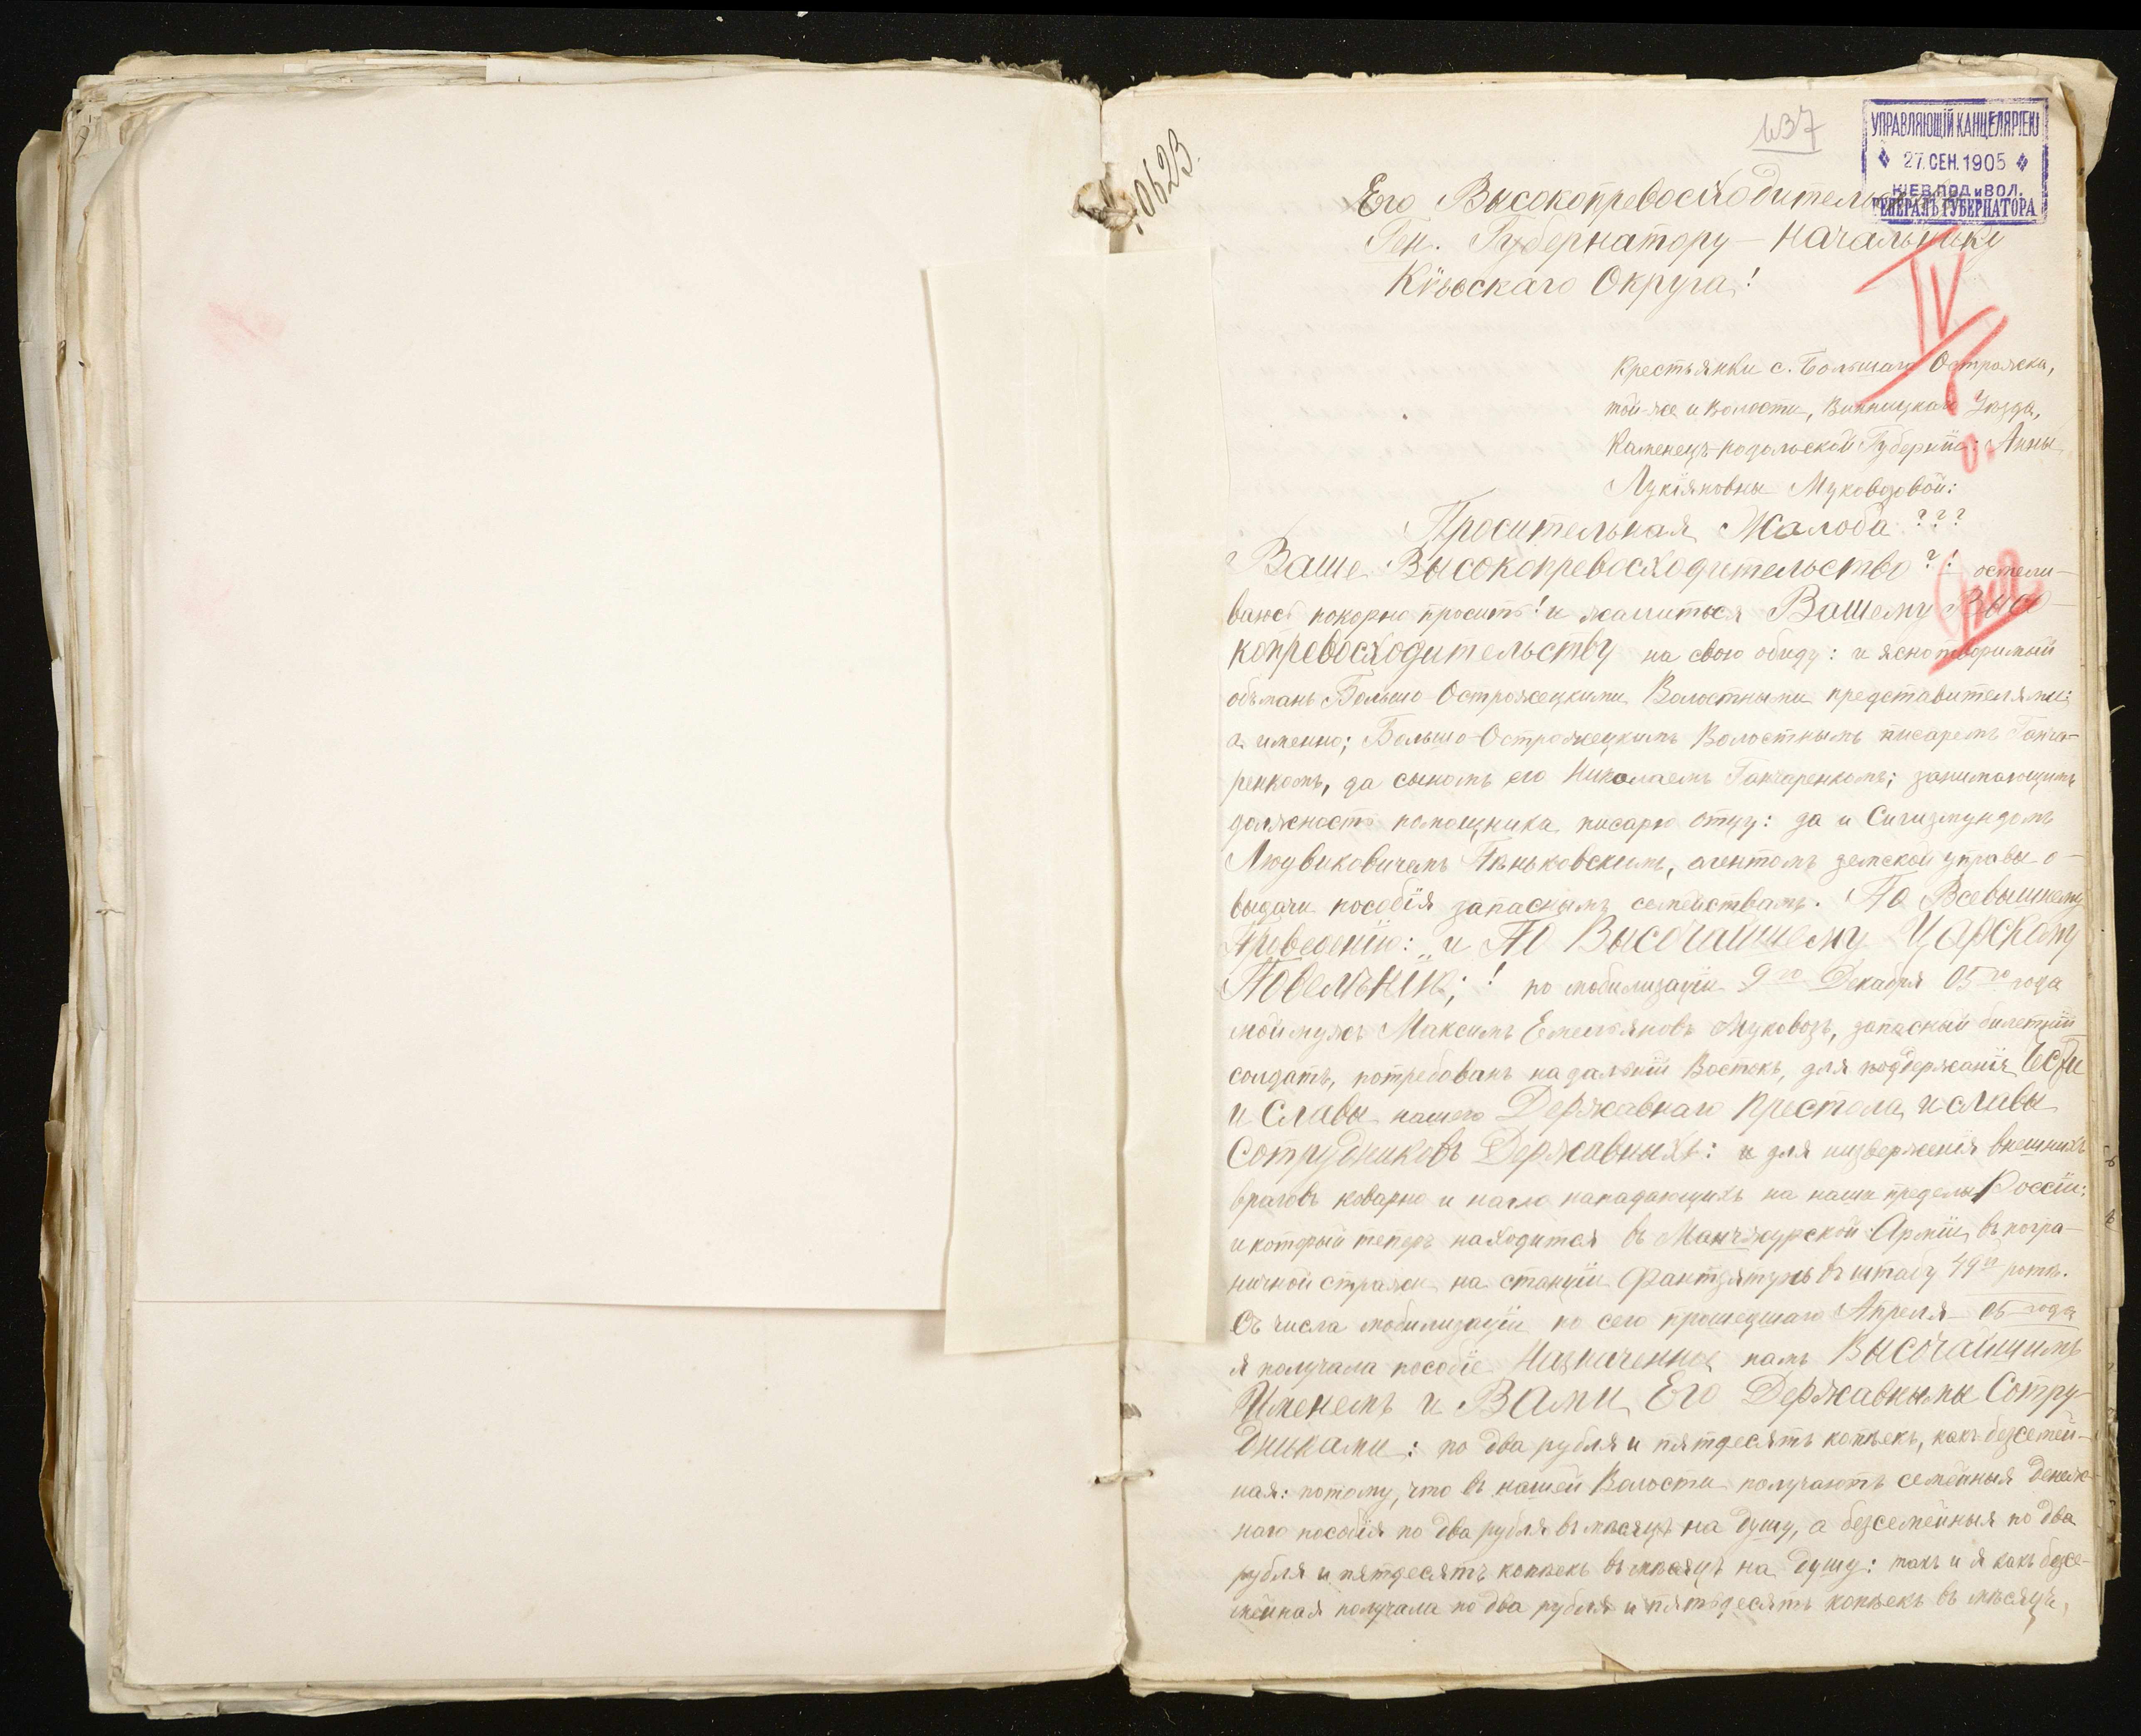 10623.
437
УПРАВЛЯЮЩІЙ КАНЦЕЛЯРІЕЮ
27. СЕН. 1905
КІЕВ. ПОД и ВОЛ.
ГЕНЕРАЛЪ ГУБЕРНАТОРА
Его Высокопревосходительству
Ген. Губернатору – Начальнику
Кіевскаго Округа!
IV
Крестьянки с. Большаго Острожска,
той-же и волости, Винницкаго Уѣзда,
Каменецъ-подольской Губерніи: Анны
Лукіяновны Муковозовой:
Просительная Жалоба ???
Ваше Высокопревосходительство?! остели-
ваюсь покорно просить! и жалиться Вашему Высо-
копревосходительству на свою обиду: и яснотворимый
объманъ Большо-Острожецкими Волостными представителями:
а именно; Большо-Острожецкимъ Волостнымъ писаремъ Ганча-
ренкомъ, да сыномъ его Николаемъ Ганчаренкомъ; занимающимъ
должность помощника писарю отцу: да и Сигизмундомъ
Людвиковичемъ Пѣньковскимъ, агентомъ земской управы о-
выдачи пособія запаснымъ семействамъ. По Всевышнему
Проведенію: „и По Высочайшему Царскому
Повелѣнію; ! по мобилизаціи 9го Декабря 05го года
мой мужъ Максимъ Емельяновъ Муковозъ, запасный билетный
солдатъ, потребованъ на дальній Востокъ, для поддержанія Чести
и Славы нашего Державнаго Престола, и славы
Сотрудниковъ Державныхъ: и для низверженія внешнихъ
враговъ коварно и нагло нападающихъ на наши пределы Россіи:
и который теперъ находится въ Манчжурской Арміи, въ погра-
ничной стражи на станціи Фантзятунь въ штабу 49й роты.
Съ числа мобилизаціи по сего прошедшаго Апреля 05 года
я получала пособіе Назначенное намъ Высочайшимъ
Именемъ и Вами Его Державными Сотру-
дниками: по два рубля и пятдесять копѣекъ, какъ безсемей-
ная: потому, что въ нашей Волости получаютъ семейныя денеж-
наго пособія по два рубля въ мѣсяцъ на душу, а безсемейныя по два
рубля и пятдесятъ копѣекъ въ мѣсяцъ на душу: такъ и я какъ безсе-
мейная получала по два рубля и пятьдесятъ копѣекъ въ мѣсяцъ,